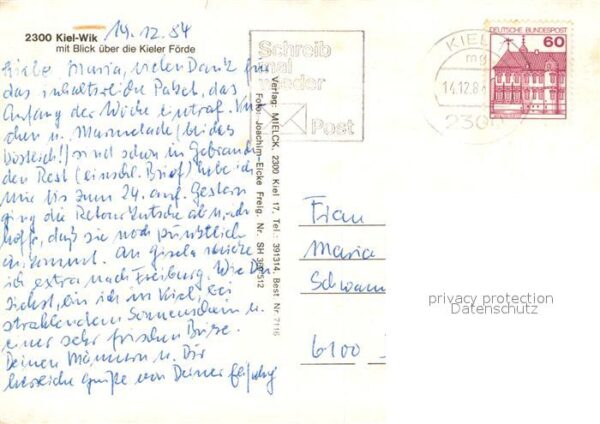 14.12.84
2300 Kiel-Wik
mit Blick über die Kieler Förde
Liebe Maria, vielen Dank für
das inhaltsreiche Paket, das
Anfang der Woche eintraf. Ku-
chen u. Marmelade (beides
köstlich!) sind schon in Gebrauch
den Rest (einschl. Brief) hebe ich
mir bis zum 24. auf. Gestern
ging die Retourkutsche ab u. ich
hoffe, daß sie noch pünktlich
ankommt. An Gisela schicke
ich extra nach Freiburg. Wie Du
siehst, bin ich in Kiel bei
strahlendem Sonnenschein u.
einer sehr frischen Brise.
Deinen Männern u. Dir
herzliche Grüße von Deiner
Verlag: MIELCK, 2300 Kiel 17, Tel.: 391314, Best. Nr. 7116
Foto: Joachim-Eicke Freig. Nr. SH
Schreib
mal
wieder
Post
KIEL
mg
14.12.84
2300
DEUTSCHE BUNDESPOST
60
Frau
Maria
Schwam
6100
privacy protection
Datenschutz